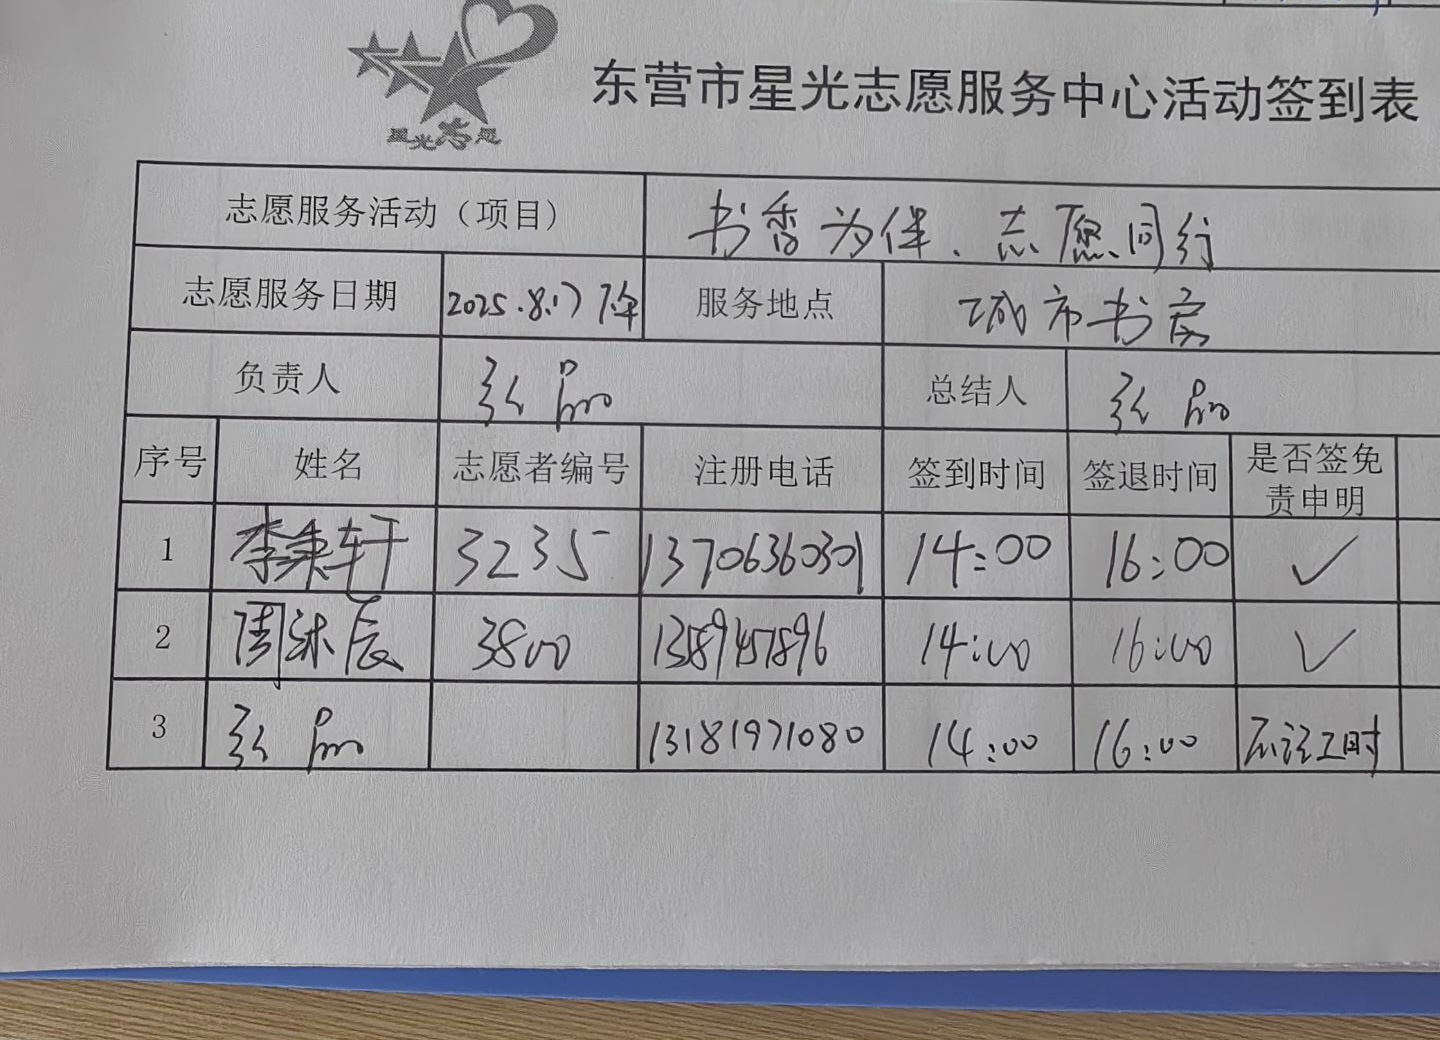 星光志愿
东营市星光志愿服务中心活动签到表
志愿服务活动（项目） 书香为伴、志愿同行
志愿服务日期 2025.8.17 下午 服务地点 城市书房
负责人 张 总结人 张
序号 姓名 志愿者编号 注册电话 签到时间 签退时间 是否签免责申明
1 李秉轩 3235 13706360301 14:00 16:00 ✓
2 周沐辰 3800 13589457896 14:00 16:00 ✓
3 张 13181971080 14:00 16:00 不记工时